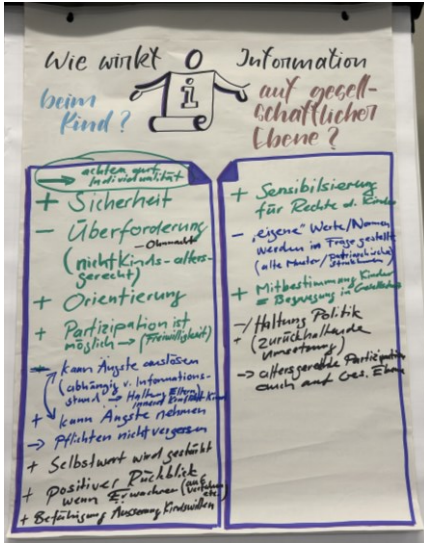 Wie wirkt Information
i
beim
Kind?
auf gesell-
schaftlicher
Ebene?
→ achten auf
Individualität
+ Sicherheit
- Überforderung
- Ohnmacht
(nicht Kinds-alters-
gerecht)
+ Orientierung
+ Partizipation ist
möglich → (Freiwilligkeit)
- kann Ängste auslösen
(abhängig v. Informations-
stand → Haltung Eltern)
+ kann Ängste nehmen
→ Pflichten nicht vergessen
+ Selbstwert wird gestärkt
+ Positiver Rückblick
wenn Erwachsen
+ Befähigung Äusserung Kindswillen
+ Sensibilsierung
für Rechte d. Kinder
- "eigene" Werte/Normen
werden in Frage gestellt
(alte Muster/patriarchische
Strukturen)
+ Mitbestimmung Kinder
= Bewegung in Gesellschaft
-/+ Haltung Politik
(zurückhaltende
Umsetzung)
→ altersgerechte Partizipation
auch auf Ges. Ebene